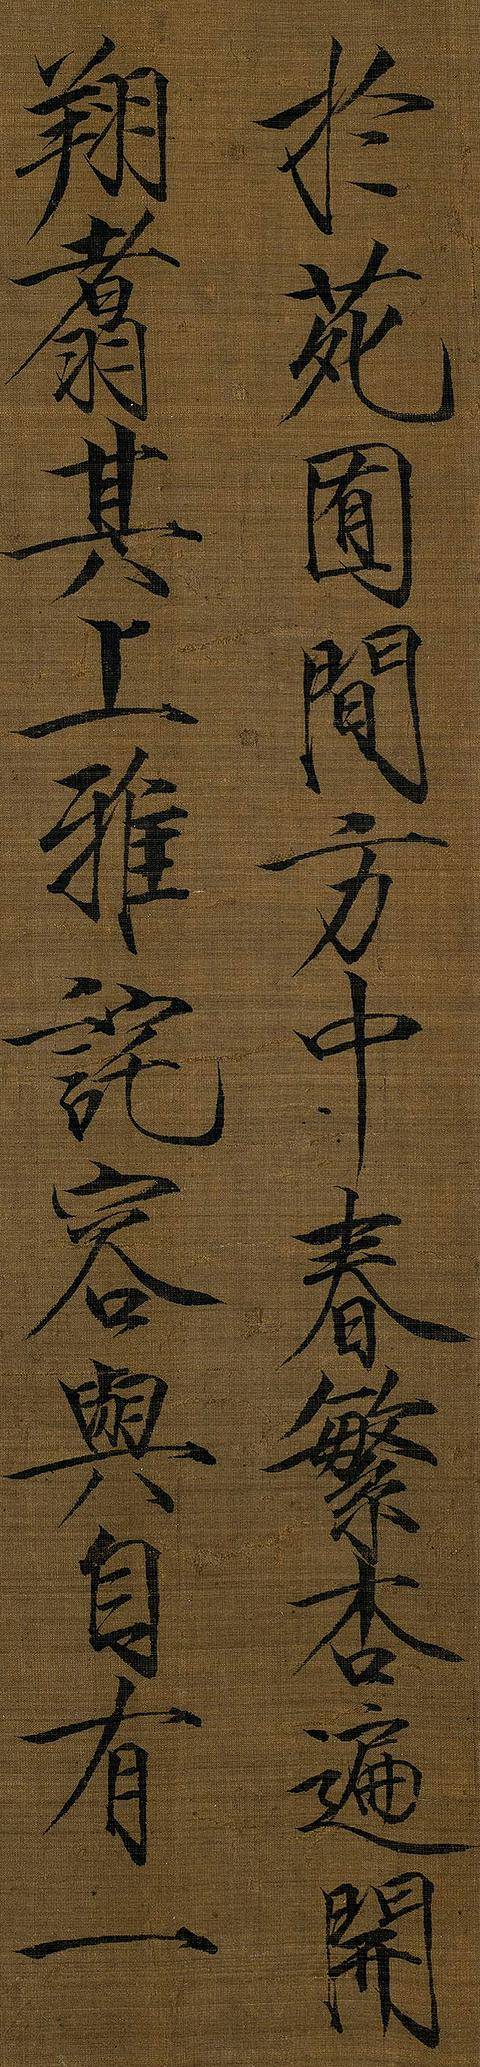 於苑囿間方中春繁杏遍開
翔翥其上雅詫容與自有一